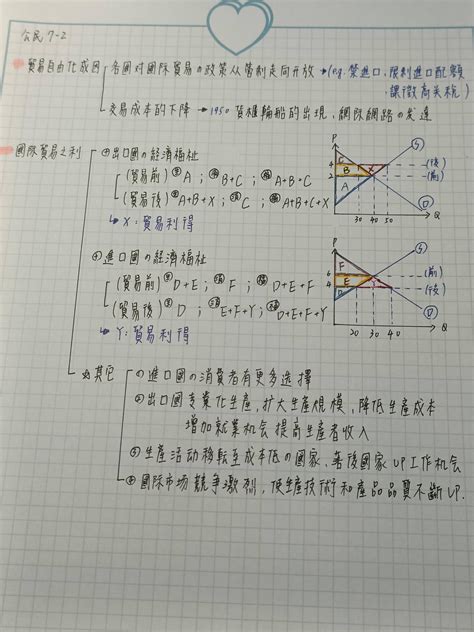 公民7-2
貿易自由化成因 各國対國际貿易の政策从管制走向开放→(e.g.禁進口、限制進口配額、課徵高关稅)
交易成本的下降→1950 貨櫃輪船的出現、網际網路の发達
國际貿易之利 出口國の經濟福祉
(貿易前) A ; B+C ; A+B+C
(貿易後) A+B+X ; C ; A+B+C+X
↳ X:貿易利得
P
S
C
B
X
A
4
2
(後)
(前)
30 40 50
Q
D
進口國の經濟福祉
(貿易前) D+E ; F ; D+E+F
(貿易後) D ; E+F+Y ; D+E+F+Y
↳ Y:貿易利得
P
S
F
E
Y
D
6
4
(前)
(後)
20 30 40
Q
D
其它 ①進口國の消費者有更多选擇
②出口國专業化生產,扩大生產規模,降低生產成本
增加就業机会 提高生產者收入
生產活动移転至成本低の國家,落後國家UP工作机会
國际市场競爭激烈,使生產技術和產品品質不斷UP.